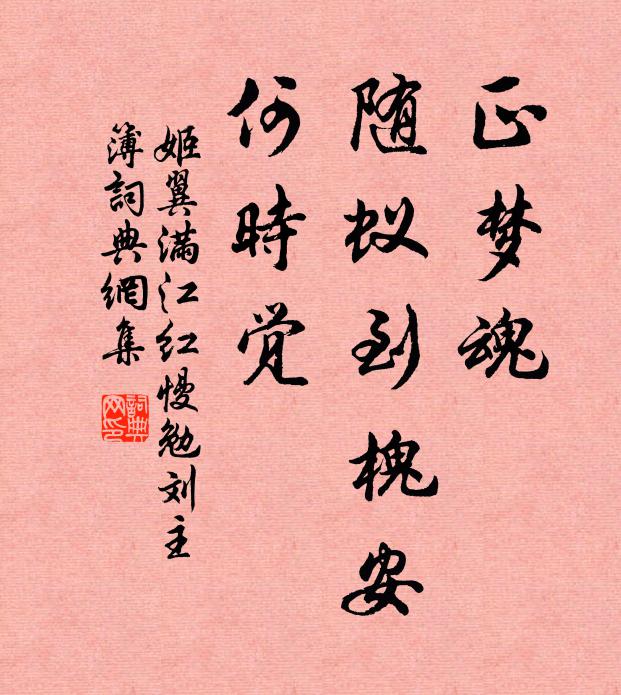 正梦魂
随蚁到槐安
何時觉
姬翼满江红慢勉刘主
簿詞典網集
詞典网印